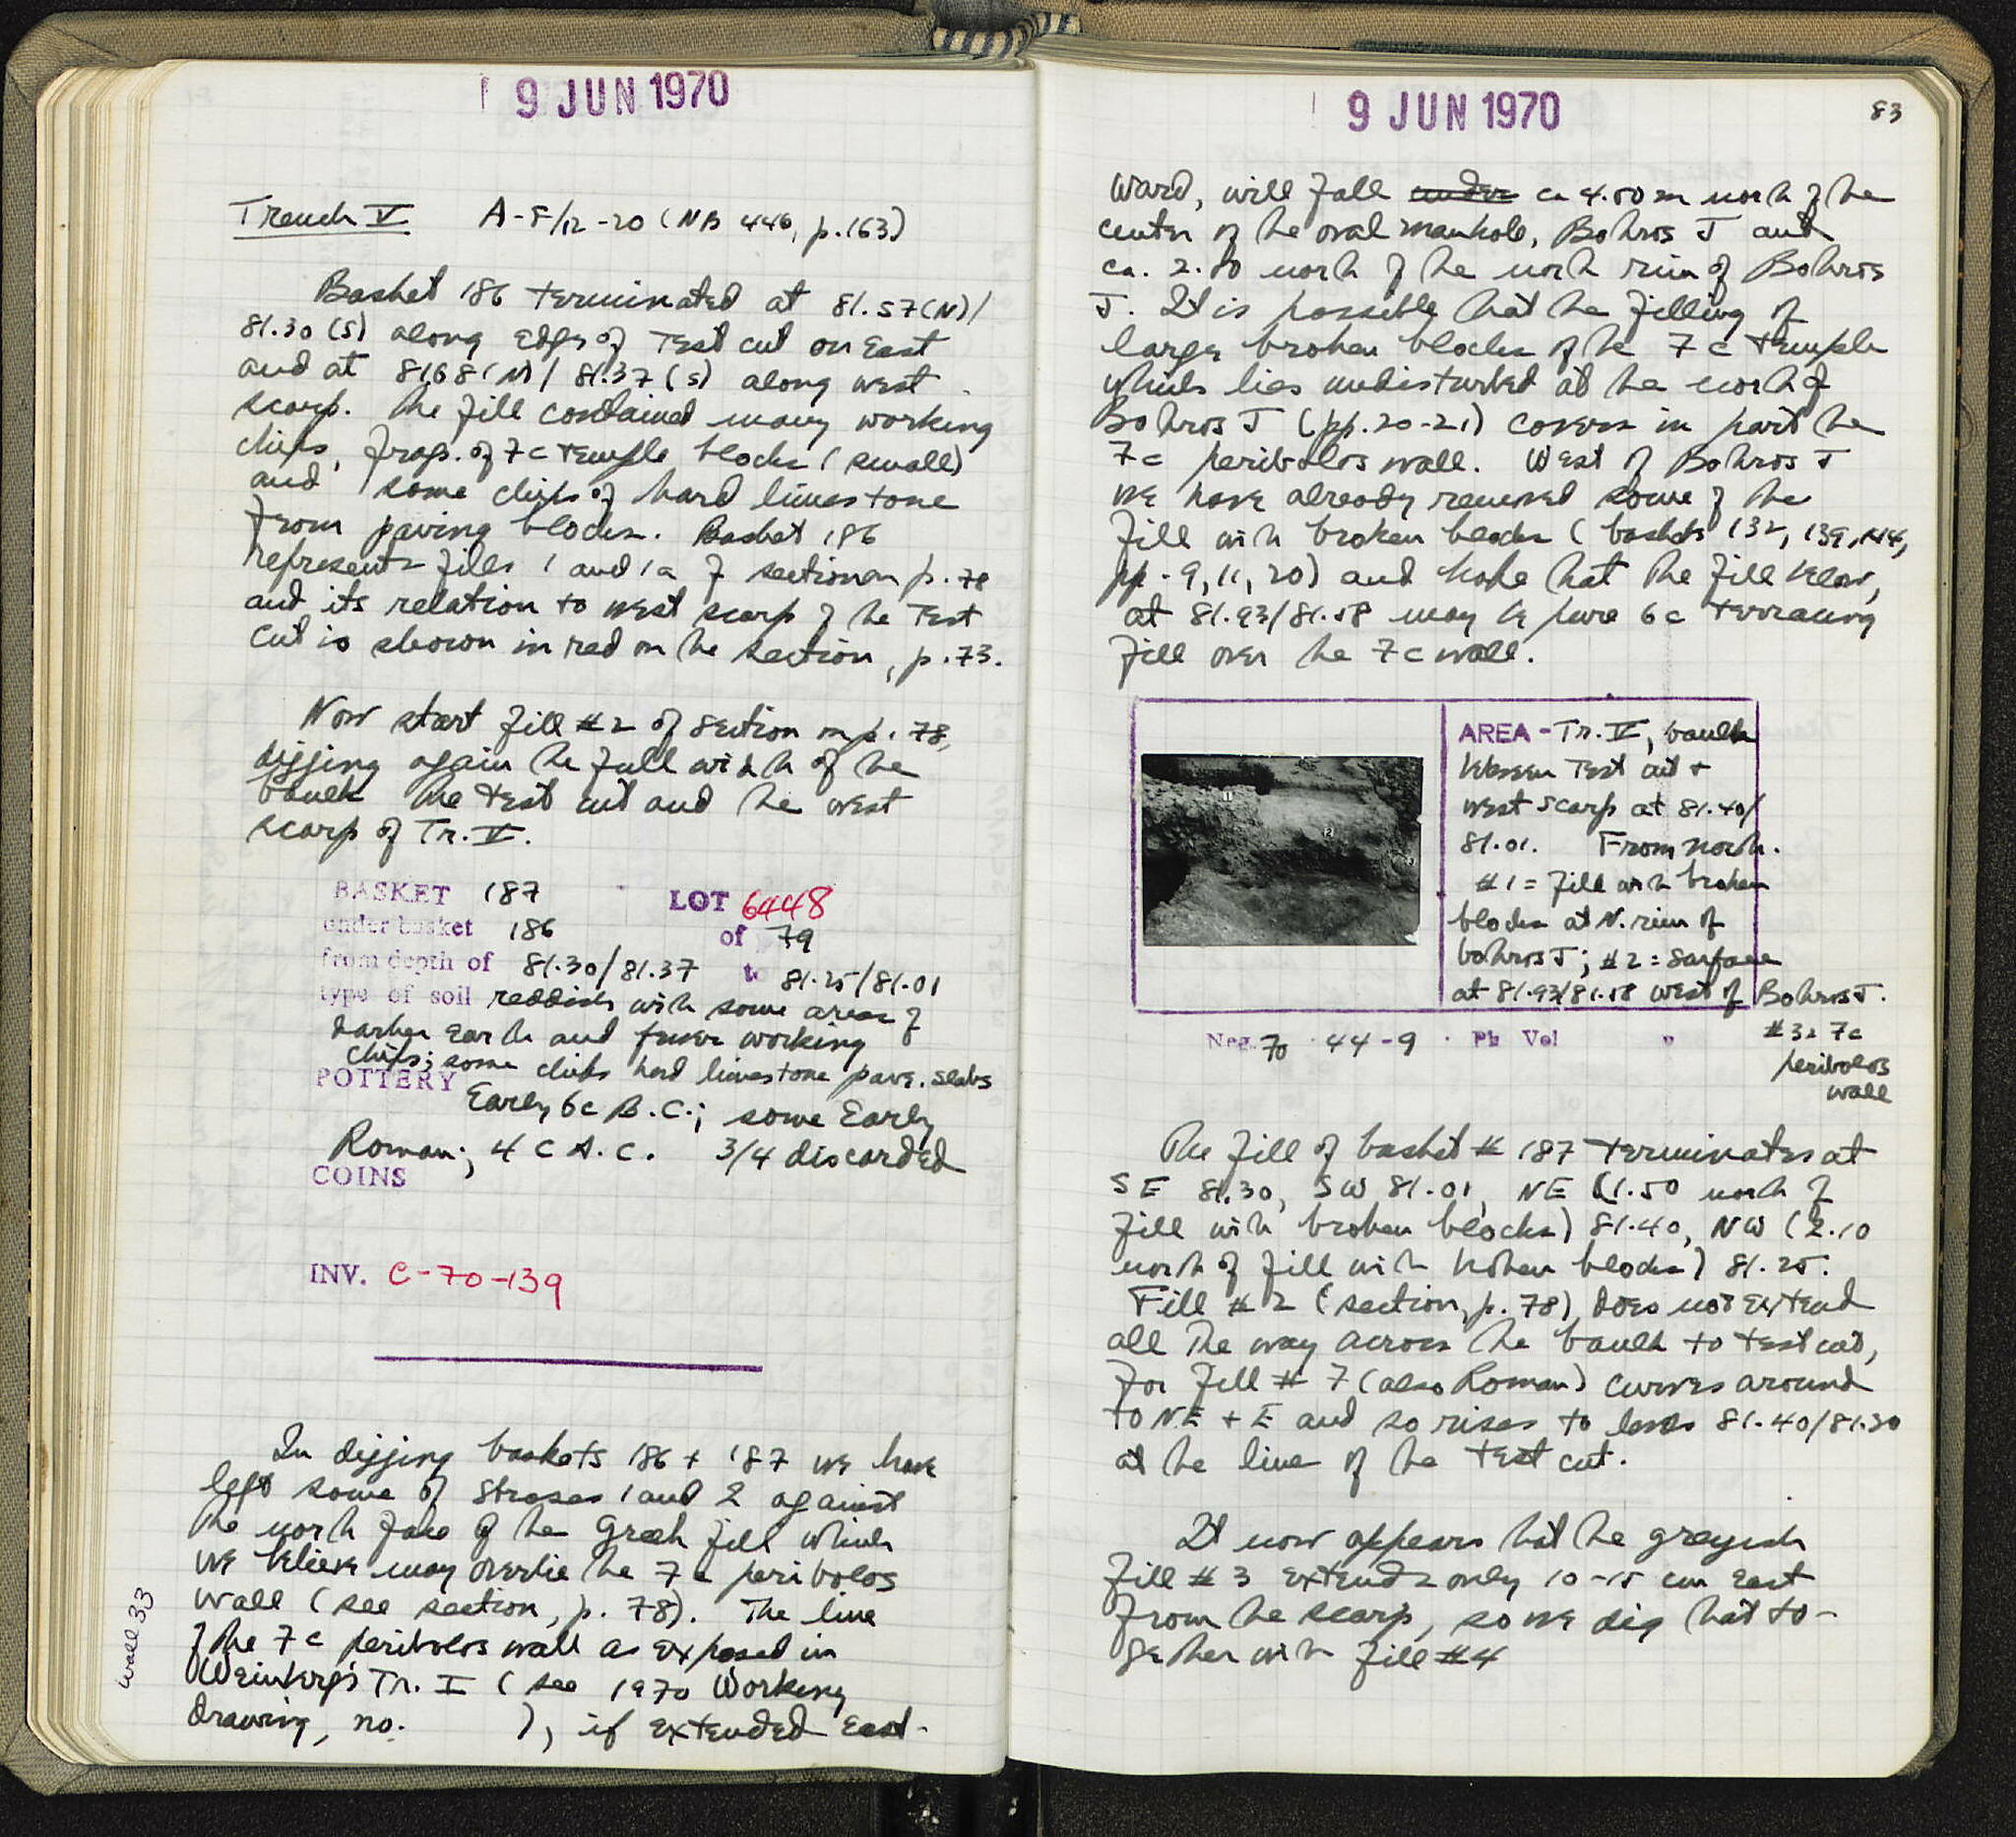 9 JUN 1970
Trench V A-F/12-20 (NB 446, p.163)
Basket 186 terminated at 81.57(N)/
81.30(S) along edge of Test cut on East
and at 81.68(N)/ 81.37(S) along west
scarp. The fill contained many working
chips, frags. of 7c temple blocks (small)
and some chips of hard limestone
from paving blocks. Basket 186
represents fills 1 and 1a of section on p.78
and its relation to west scarp of the Test
cut is shown in red on the section, p.73.
Now start fill #2 of section on p.78,
digging again the full width of the
baulk the test cut and the west
scarp of Tr. V.
BASKET 187 LOT 6448
under basket 186 of 79
from depth of 81.30/81.37 to 81.25/81.01
type of soil reddish with some areas of
darker earth and fewer working
chips; some chips hard limestone pave. slabs
POTTERY
Early 6c B.C.; some Early
Roman; 4 C A.C. 3/4 discarded
COINS
INV. C-70-139
In digging baskets 186 + 187 we have
left some of stroses 1 and 2 against
the north face of the Greek fill which
we believe may overlie the 7c peribolos
wall (see section, p. 78). The line
of the 7c peribolos wall as exposed in
Weinberg's Tr. I (see 1970 Working
drawing, no. ), if extended East-
wall 33
9 JUN 1970
83
ward, will fall under ca 4.50m north of the
center of the oval manhole, Bothros J and
ca. 2.80 north of the north rim of Bothros
J. It is possible that the filling of
large broken blocks of the 7c temple
which lies undisturbed at the north of
Bothros J (pp.20-21) covers in part the
7c peribolos wall. West of Bothros J
we have already removed some of the
fill with broken blocks (baskets 132, 139, 144,
pp. 9, 11, 20) and hope that the fill below,
at 81.93/81.58 may be pure 6c terracing
fill over the 7c wall.
AREA - Tr. V, baulk
between Test cut +
west scarp at 81.40/
81.01. From north.
#1 = fill with broken
blocks at N. rim of
bothros J; #2 = Surface
at 81.93/81.58 west of Bothros J.
#3 = 7c
peribolos
wall
Neg. 70 · 44-9 · Ph Vol "
The fill of basket # 187 terminates at
SE 81.30, SW 81.01, NE (1.50 north of
fill with broken blocks) 81.40, NW (2.10
north of fill with broken blocks) 81.25.
Fill #2 (section, p. 78) does not extend
all the way across the baulk to test cut,
for fill # 7 (also Roman) curves around
to NE + E and so rises to levels 81.40/81.30
at the line of the test cut.
It now appears that the greyish
fill #3 extends only 10-15 cm East
from the scarp, so we dig that to-
gether with fill #4